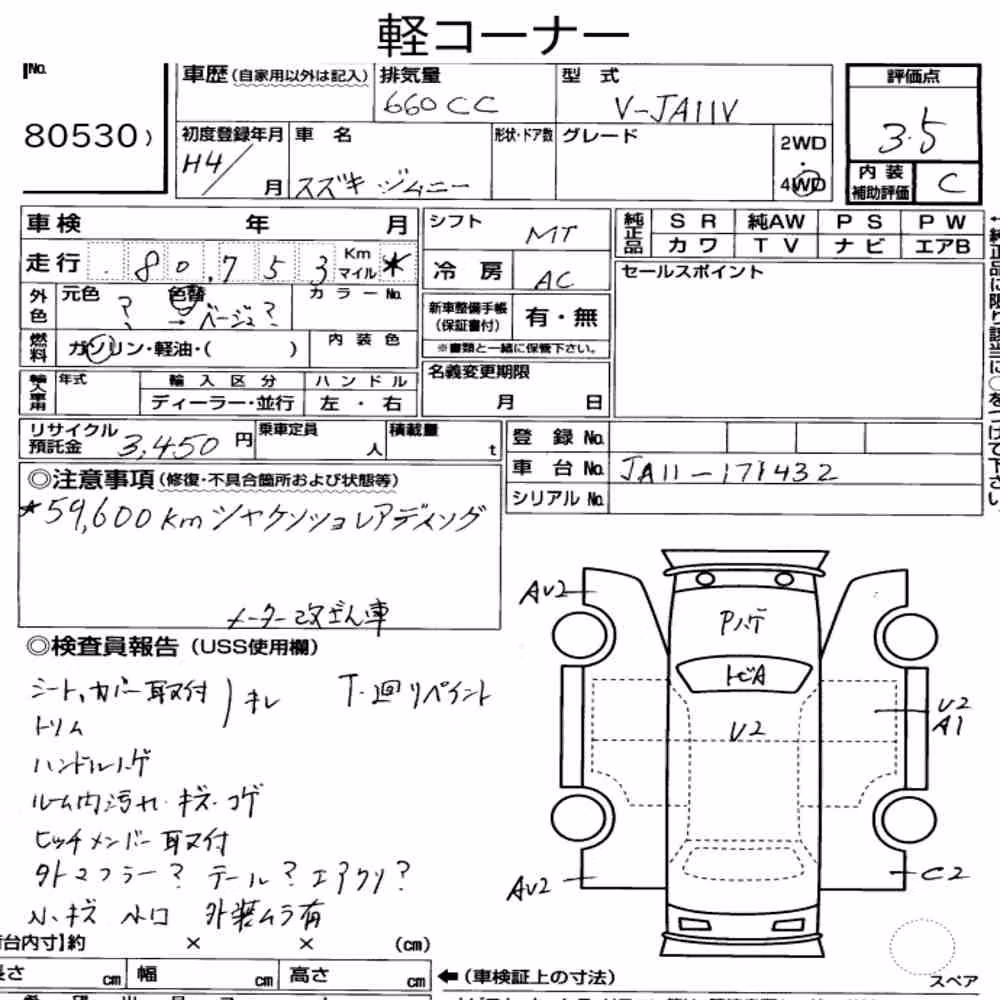 軽コーナー
No.
80530)
車歴 (自家用以外は記入)
排気量
660CC
型式
V-JA11V
評価点
3.5
初度登録年月
H4/
月
車名
スズキ ジムニー
形状・ドア数
グレード
2WD
・
4WD
内装
補助評価
C
車検 年 月
走行 . 80,753 Km マイル *
外色
元色
?
色替
→ ベージュ?
カラーNo.
燃料
ガソリン・軽油・( )
内装色
輸入車用
年式
輸入区分
ディーラー・並行
ハンドル
左・右
シフト
MT
冷房
AC
新車整備手帳
(保証書付)
有・無
※書類と一緒に保管下さい。
名義変更期限
月 日
純正品
SR 純AW PS PW
カワ TV ナビ エアB
セールスポイント
←純正品に限り該当に○をつけて下さい。
リサイクル
預託金
3,450円
乗車定員
人
積載量
t
登録No.
車台No.
JA11-171432
シリアルNo.
◎注意事項(修復・不具合箇所および状態等)
*59,600km シャケンショ レアディング
メーター改ざん車
◎検査員報告(USS使用欄)
シート,カバー取付
トリム
) キレ
T.1回リペイント
ハンドルハゲ
ルーム内汚れ・キズ・コゲ
ヒッチメンバー取付
外マフラー? テール? エアクリ?
小・キズ 小凹 外装ムラ有
AV2
Pハゲ
トビA
V2
V2
A1
AV2
C2
荷台内寸]約 × × (cm)
長さ cm 幅 cm 高さ cm
←(車検証上の寸法)
スペア